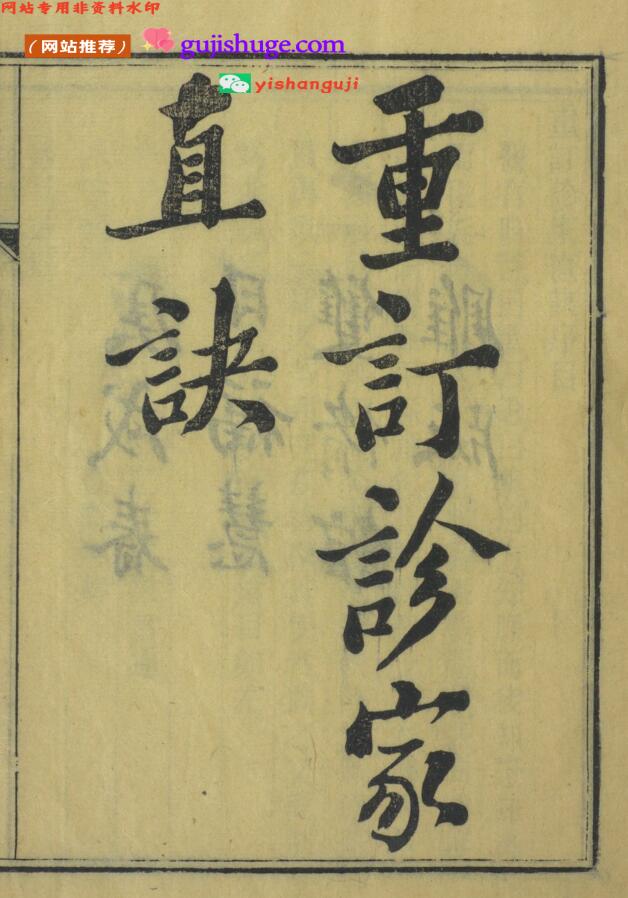 网站专用非资料水印
（网站推荐）
gujishuge.com
yishanguji
重訂診家
直訣